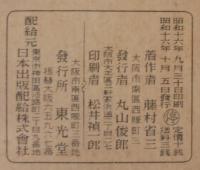 昭和十六年九月三十日印刷
昭和十六年十月五日發行
定價十錢
送料三錢
著作者 藤村省三
大阪市南區西賑町三二番地
發行者 丸山俊郎
印刷者 松井禎一郎
大阪市南區西賑町三二番地
發行所 東光堂
東京市神田區淡路町二丁目九番地
配給元 日本出版配給株式會社